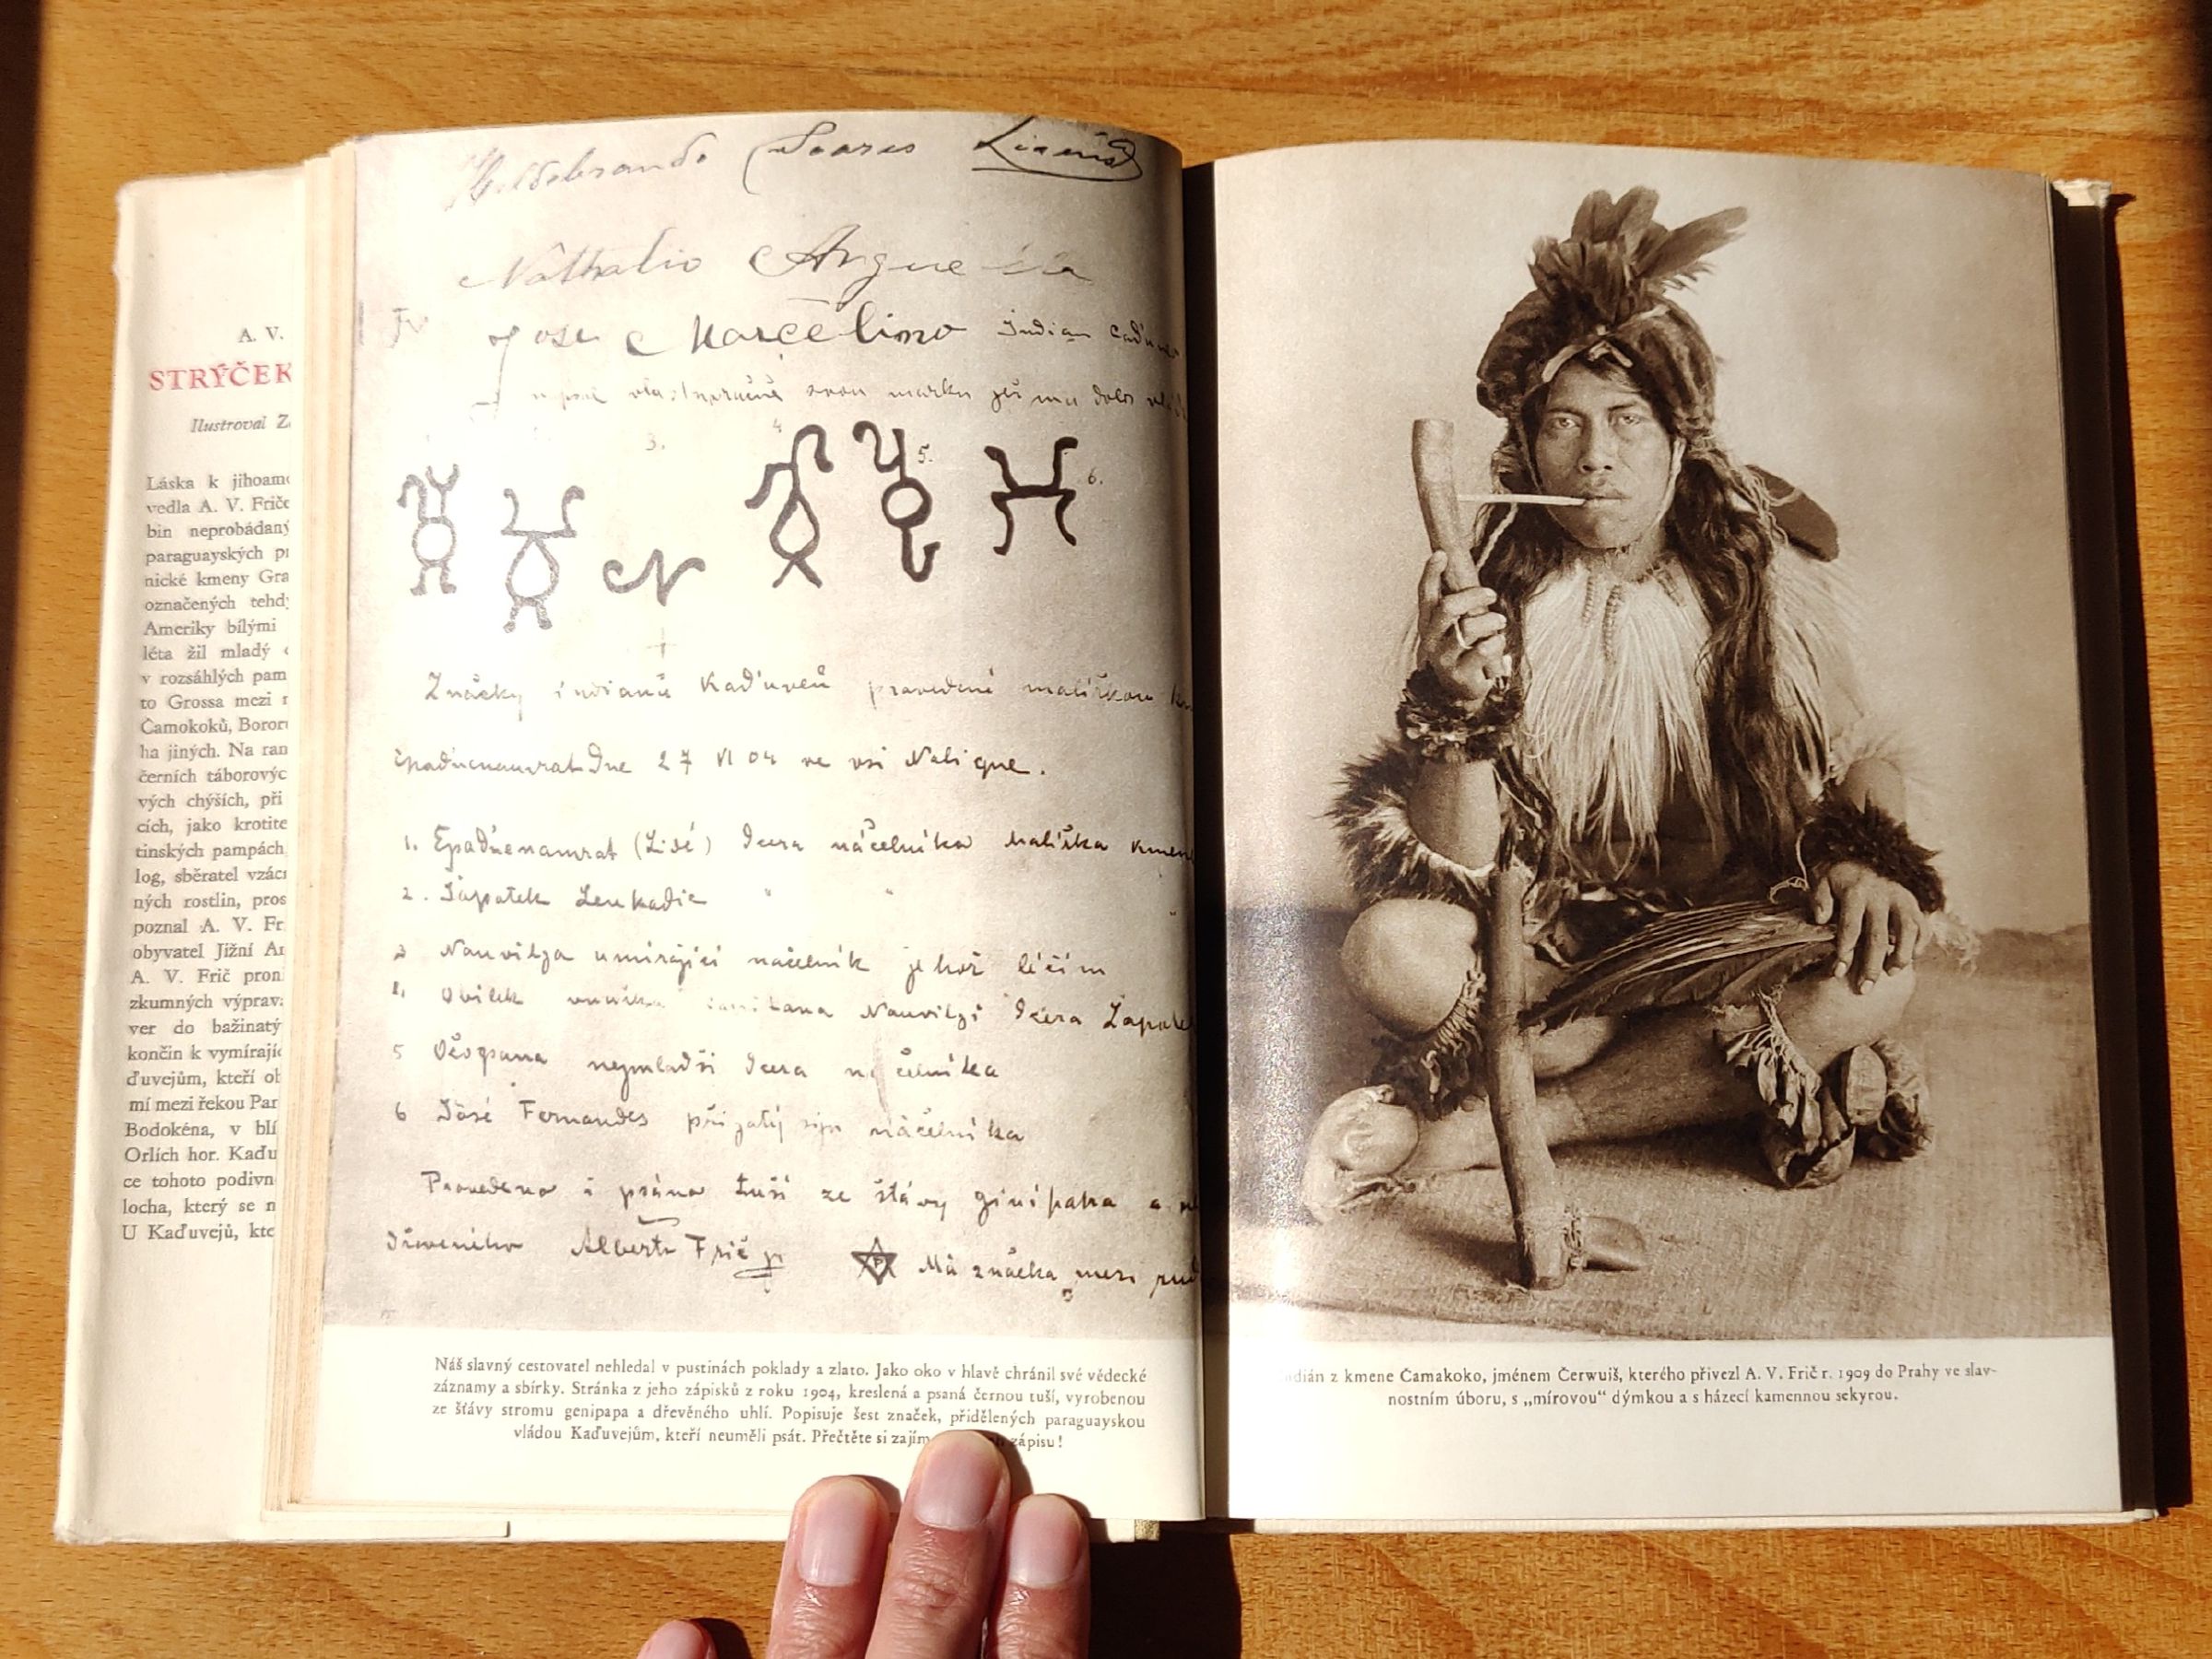 A. V.
STRÝČEK
Ilustroval Z
Láska k jihoam
vedla A. V. Frič
bin neprobádaný
paraguayských p
nické kmeny Gra
označených tehd
Ameriky bílými
léta žil mladý
v rozsáhlých pam
to Grossa mezi
Čamokoků, Boror
ha jiných. Na ran
černích táborovýc
vých chýších, při
cích, jako krotite
tinských pampách
log, sběratel vzác
ných rostlin, pros
poznal A. V. Fr
obyvatel Jižní A
A. V. Frič pron
zkumných výprav
ver do bažinatý
končin k vymírajíc
ďuvejům, kteří o
mí mezi řekou Par
Bodokéna, v blí
Orlích hor. Kaďu
ce tohoto podivn
locha, který se n
U Kaďuvejů, kte
Hildebrando Soares
Nathalio
Jose Marcelino Indian
svou marku již mu
3. 4 5. 6.
Značky indianů Kaďuveů provedené malířkou
dne 27 VI 04 ve vsi Nalique.
1. (Lisé) dcera náčelníka malířka kmen
2. Leukadie " "
3 Nauvilza umírající náčelník jehož léčím
Nauvilzi dcera
5 nejmladší dcera náčelníka
6 José Fernandes přijatý syn náčelníka
Provedeno i psáno tuší ze šťávy ginipapa a
dřeveného Alberto Frič
Má značka mezi
Náš slavný cestovatel nehledal v pustinách poklady a zlato. Jako oko v hlavě chránil své vědecké
záznamy a sbírky. Stránka z jeho zápisků z roku 1904, kreslená a psaná černou tuší, vyrobenou
ze šťávy stromu genipapa a dřevěného uhlí. Popisuje šest značek, přidělených paraguayskou
vládou Kaďuvejům, kteří neuměli psát. Přečtěte si zápisu!
dián z kmene Čamakoko, jménem Čerwuiš, kterého přivezl A. V. Frič r. 1909 do Prahy ve slav-
nostním úboru, s „mírovou“ dýmkou a s házecí kamennou sekyrou.